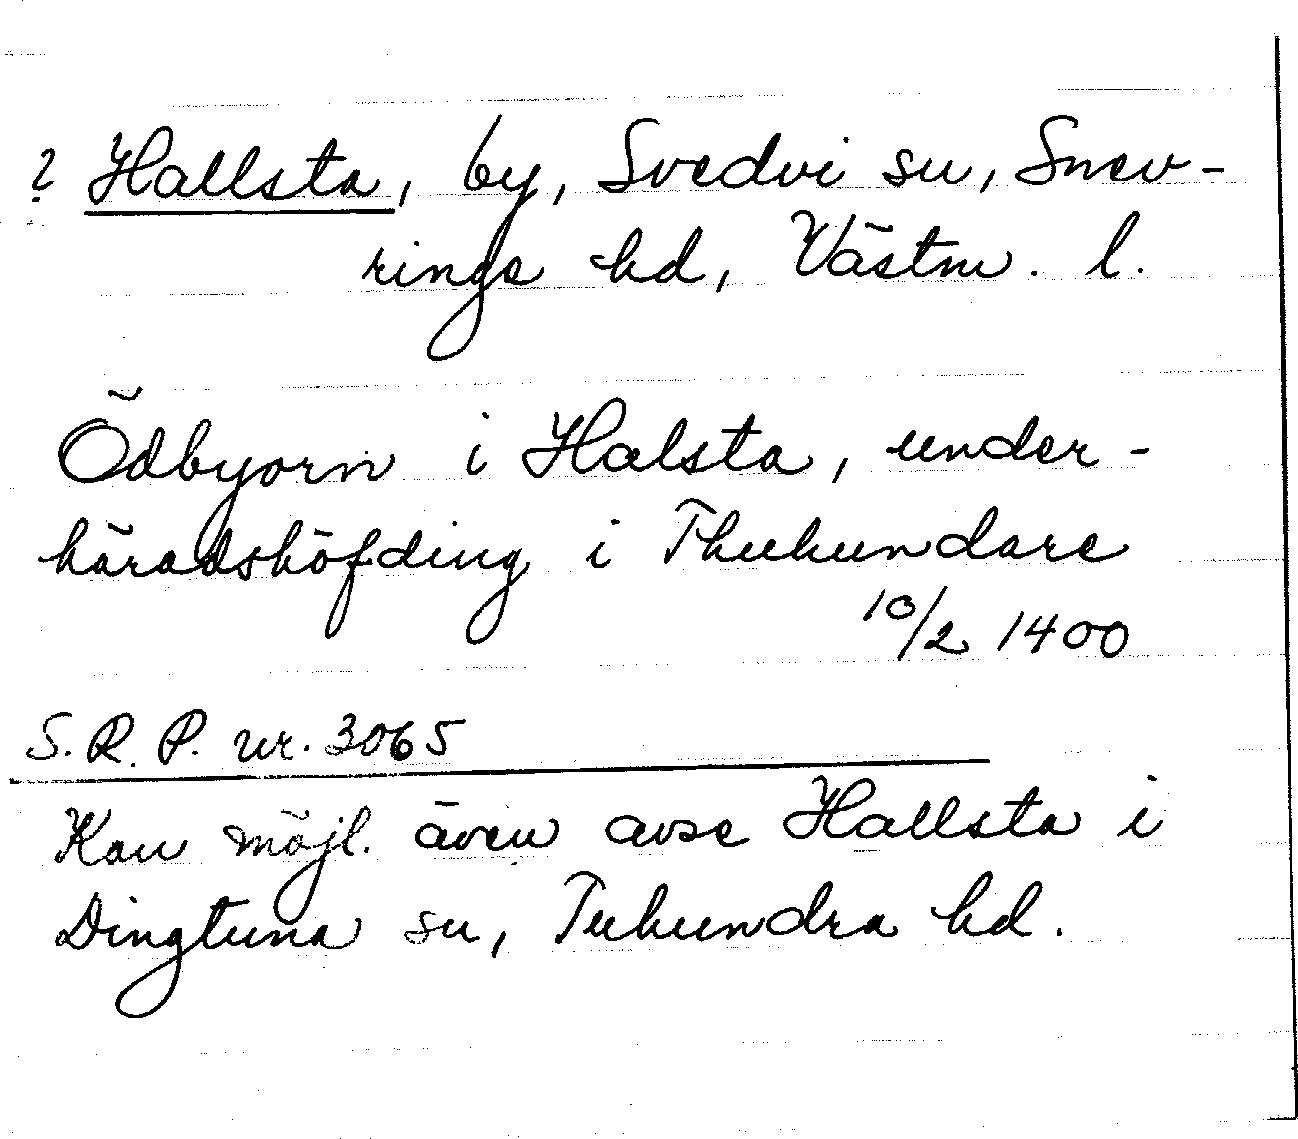 ? Hallsta, by, Svedvi sn, Snev-
rings hd, Västm. l.
Ödbyorn i Halsta, under-
häradshöfding i Thuhundare
10/2 1400
S. R. P. nr. 3065
Kan möjl. även avse Hallsta i
Dingtuna sn, Tuhundra hd.